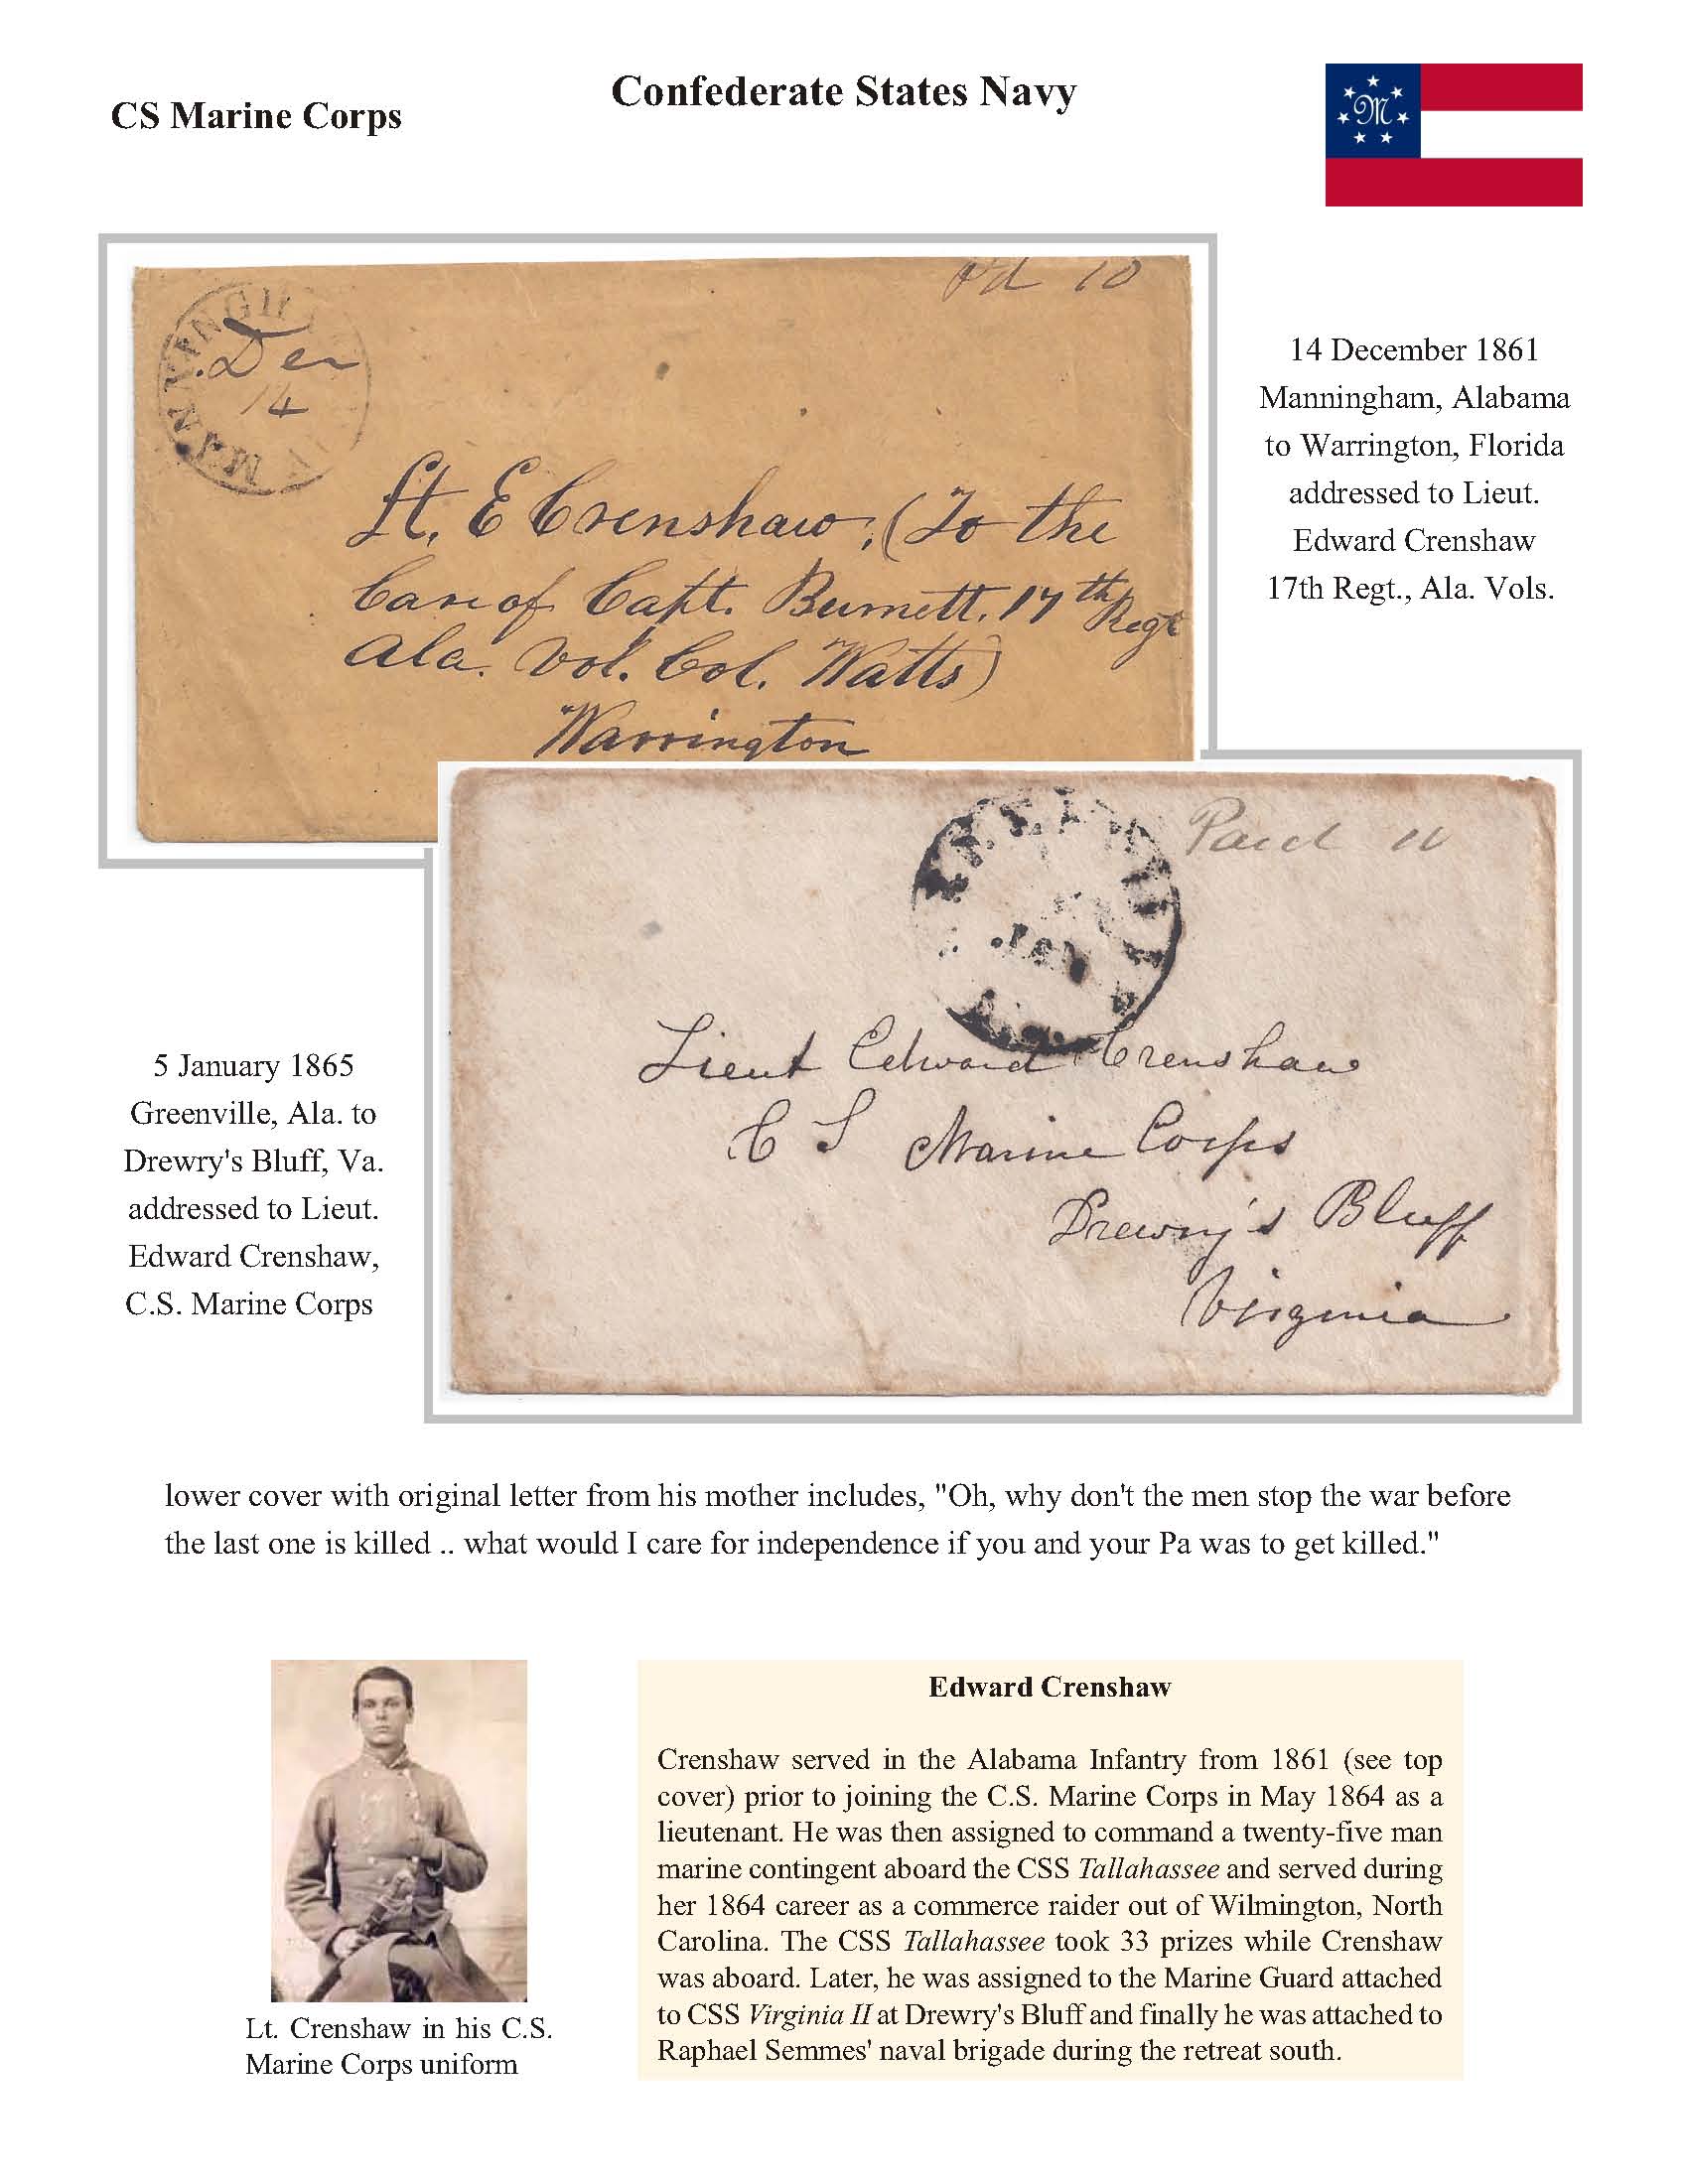 Confederate States Navy
CS Marine Corps
M
Pd 10
MANNINGH
Dec
14
Lt. E Crenshaw, (To the
Care of Capt. Burnett, 17th Regt
Ala. Vol. Col. Watts)
Warrington
14 December 1861
Manningham, Alabama
to Warrington, Florida
addressed to Lieut.
Edward Crenshaw
17th Regt., Ala. Vols.
Paid 10
Lieut Edward Crenshaw
C S Marine Corps
Drewry's Bluff
Virginia
5 January 1865
Greenville, Ala. to
Drewry's Bluff, Va.
addressed to Lieut.
Edward Crenshaw,
C.S. Marine Corps
lower cover with original letter from his mother includes, "Oh, why don't the men stop the war before
the last one is killed .. what would I care for independence if you and your Pa was to get killed."
Lt. Crenshaw in his C.S.
Marine Corps uniform
Edward Crenshaw
Crenshaw served in the Alabama Infantry from 1861 (see top
cover) prior to joining the C.S. Marine Corps in May 1864 as a
lieutenant. He was then assigned to command a twenty-five man
marine contingent aboard the CSS Tallahassee and served during
her 1864 career as a commerce raider out of Wilmington, North
Carolina. The CSS Tallahassee took 33 prizes while Crenshaw
was aboard. Later, he was assigned to the Marine Guard attached
to CSS Virginia II at Drewry's Bluff and finally he was attached to
Raphael Semmes' naval brigade during the retreat south.